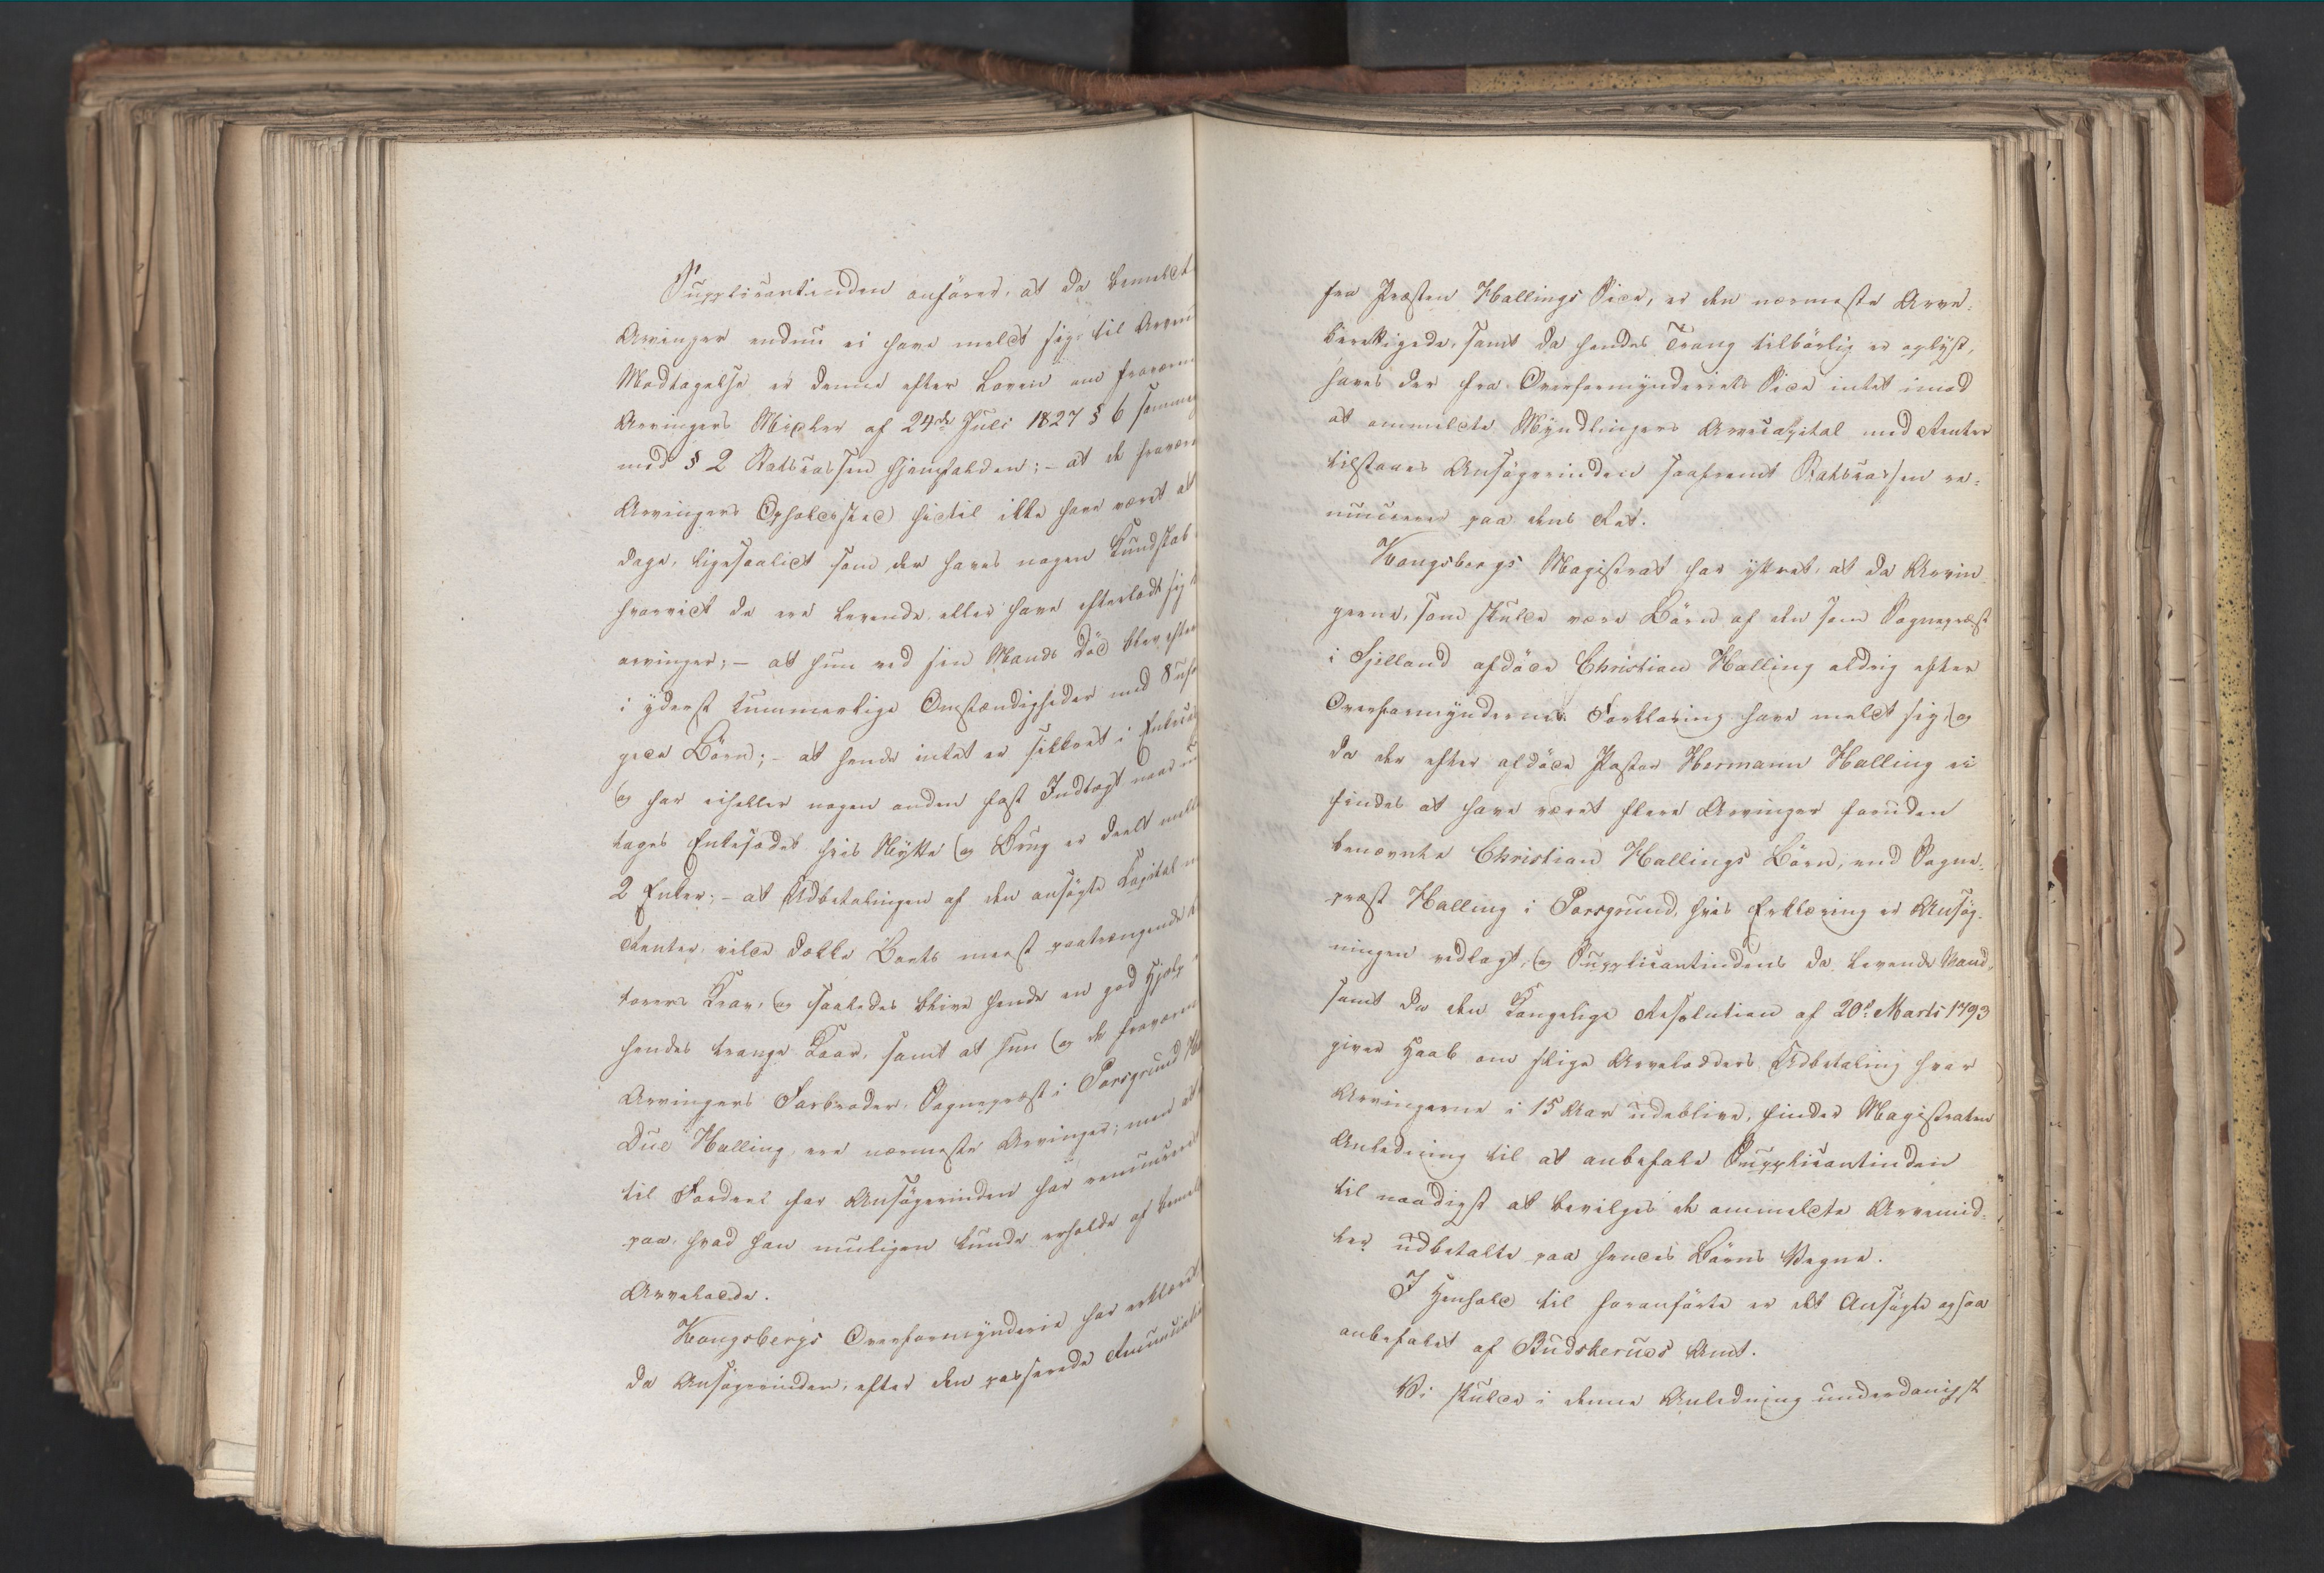 Supplicantinden anfører, at da bemeldte
Arvinger endnu ei have meldt sig til Arvens
Modtagelse er denne efter Loven om fraværende
Arvingers Midler af 24de Juli 1827 § 6 sammen
med § 2 Statscassen hjemfalden; – at de fraværende
Arvingers Opholdssted hidtil ikke have været at
dage, ligesaalidt som der haves nogen Kundskab
hvorvidt de ere levende eller have efterladt sig
arvinger; – at hun ved sin Mands Død blev efter
i yderst kummerlige Omstændigheder med 8 ufor
gede Børn; – at hende intet er sikkret i Enke
og har eiheller nogen anden fast Indtægt naar und
tages Enkesædet hvis Nytte og Brug er deelt mellem
2 Enker; – at Udbetalingen af den ansøgte Kapital
Renter, vilde dække Boets meest paatrængende
torers Krav, og saaledes blive hende en god Hjelp i
hendes trange Kaar, samt at hun og de fraværende
Arvingers Farbroder, Sognepræst i Porsgrund
Due Halling, ere nærmeste Arvinger; men at
til Fordeel for Ansøgerinden har renunceret
paa, hvad han muligen kunde erholde af bemeldte
Arvelodde.
Kongsbergs Overformynderie har erklæret
da Ansøgerinden, efter den passerede Renunciation
fra Præsten Hallings Side, er den nærmeste Arve-
berettigede, samt da hendes Trang tilbørlig er oplyst,
haves der fra Overformynderiets Side intet imod
at ommeldte Myndlingers Arvecapital med Renter
tilstaaes Ansøgerinden saafremt Statscassen re-
nuncerer paa dens Ret.
Kongsbergs Magistrat har yttret, at da Arvin-
gerne, som skulde være Børn af den som Sognepræst
i Sjelland afdøde Christian Halling aldrig efter
Overformyndernes Forklaring have meldt sig, og
da der efter afdøde Pastor Hermann Halling ei
findes at have været flere Arvinger foruden
benævnte Christian Hallings Børn, end Sogne-
præst Halling i Porsgrund, hvis Erklæring er Ansøg-
ningen vedlagt, og Supplicantindens da levende Mand,
samt da den Kongelige Resolution af 20de Marts 1793
giver Haab om slige Arvelodders Udbetaling hvor
Arvingerne i 15 Aar udeblive, finder Magistraten
Anledning til at anbefale Supplicantinden
til naadigst at bevilges de ommeldte Arvemid-
ler udbetalte paa hendes Børns Vegne.
I Henhold til foranførte er det Ansøgte ogsaa
anbefalet af Budskeruds Amt.
Vi skulde i denne Anledning underdanigst